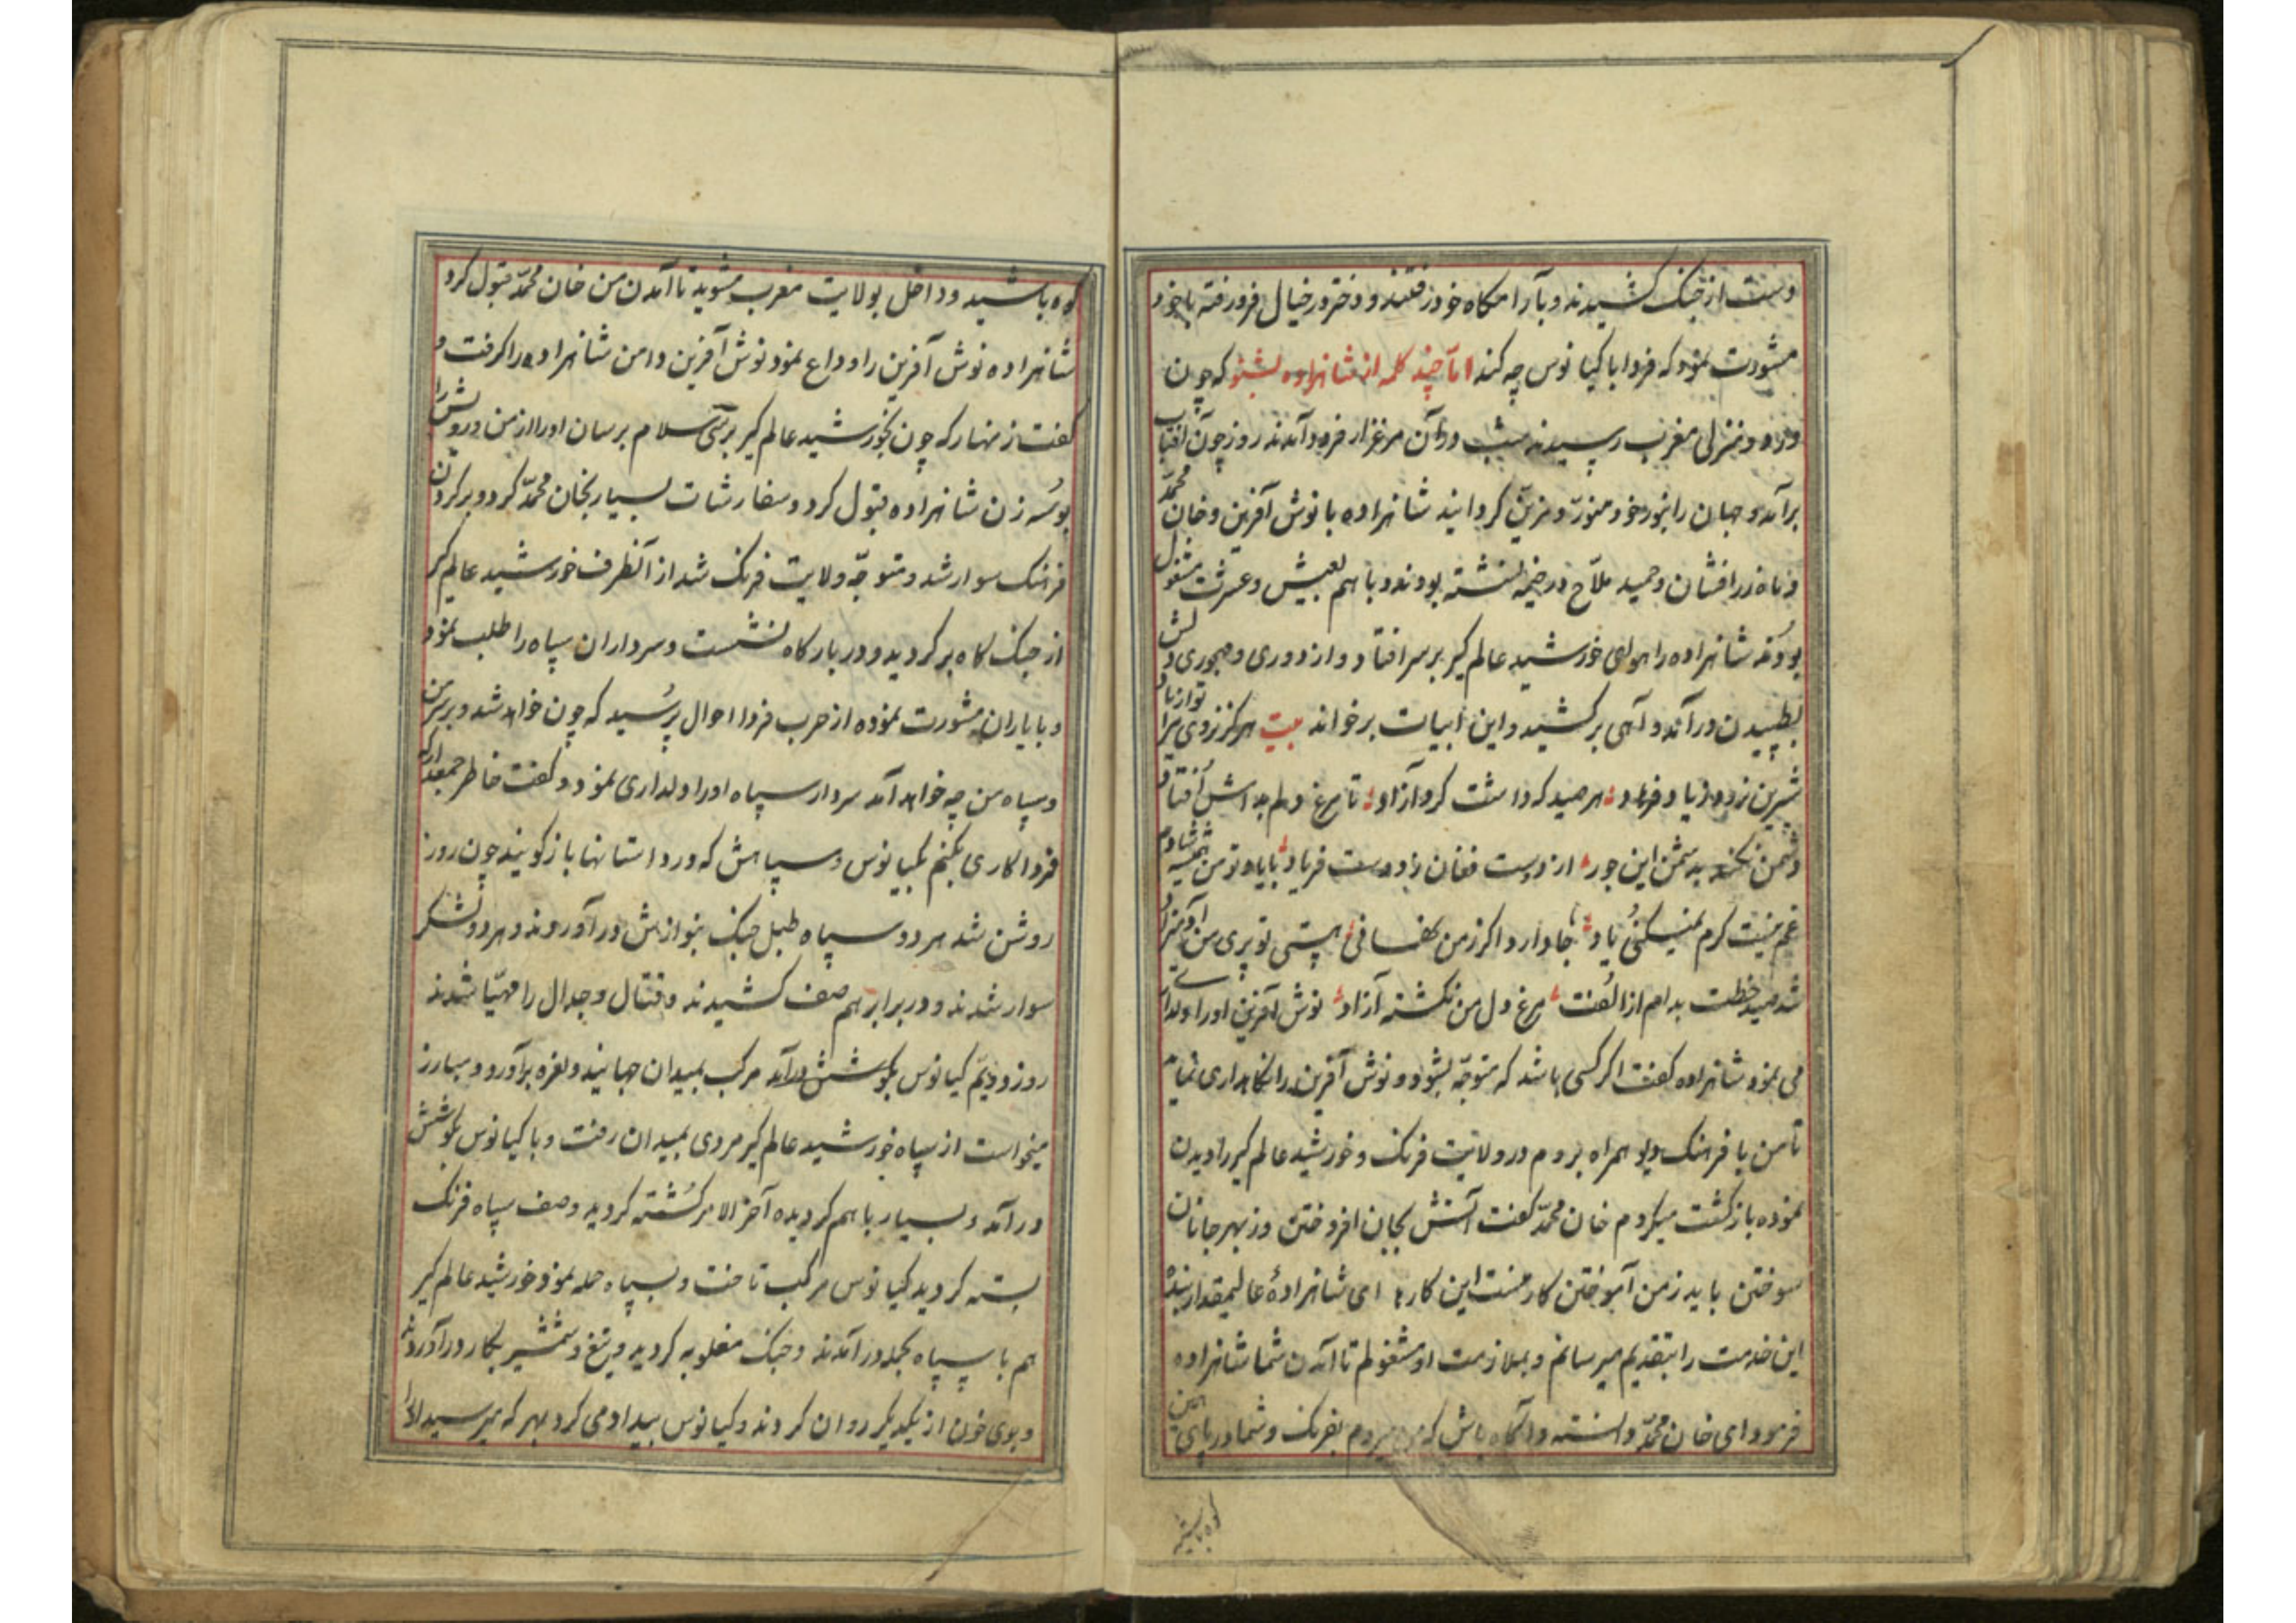 دست از جنک کشیدند و بآرامکاه خود رفتند و دختر در خیال فرو رفته با خود
مشورت نمود که فردا با کیانوس چه کند اما چند کلمه از شاهزاده بشنو که چون
در دو منزلی مغرب رسیدند شب در آن مرغزار فرود آمدند روز چون آفتاب
برآمد و جهان را بنور خود منور و مزین کردانید شاهزاده با نوش آفرین و خان محمد
و ماه زرافشان و حمید ملاح در خیمه نشسته بودند و با هم بعیش و عشرت مشغول
بودند شاهزاده را هوای خورشید عالم کیر بر سر افتاد و از دوری و مهجوری دلش
بطپیدن در آمد و آهی برکشید و این ابیات برخواند بیت هرکز نروی مرا تو از یاد
شیرین نرود ز یاد فرهاد هر صید که داشت کرد آزاد تا مرغ دلم بدامش افتاد
دشمن نکند بدشمن این جور از دوست فغان ز دوست فریاد با یاد تو من همیشه شادم
غم نیست کرم نمیکنی یاد جا دارد اکر ز من نفسانی هستی تو پری من آدمیزاد
شد صید خطت بدام از الفت مرغ دل من نکشته آزاد نوش آفرین او را دلداری
می نمود شاهزاده کفت اکر کسی باشد که متوجه بشود و نوش آفرین را نکاهداری نماید
تا من با فرهنک دیو همراه بروم در ولایت فرنک و خورشید عالم کیر را دیدن
نموده بازکشت میکردم خان محمد کفت آتش بجان افروختن وز بهر جانان
سوختن باید ز من آموختن کار منست این کارها ای شاهزادهٔ عالیمقدار بنده
این خدمت را بتقدیم میرسانم و بملازمت او مشغولم تا آمدن شما شاهزاده
فرمود ای خان محمد دانسته و آکاه باش که من میروم بفرنک و شما در پای این
کوه باشید
کوه باشید و داخل بولایت مغرب مشوید تا آمدن من خان محمد قبول کرد
شاهزاده نوش آفرین را وداع نمود نوش آفرین دامن شاهزاده را کرفت و
کفت زنهار که چون بخورشید عالم کیر برسی سلام برسان او را از من و رویش را
بوسه زن شاهزاده قبول کرد و سفارشات بسیار بخان محمد کرد و بر کردن
فرهنک سوار شد و متوجه ولایت فرنک شد از آنطرف خورشید عالم کیر
از جنک کاه برکردید و در بارکاه نشست و سرداران سپاه را طلب نمود
و با یاران مشورت نموده از حرب فردا احوال پرسید که چون خواهد شد و بر سر من
و سپاه من چه خواهد آمد سردار سپاه او را دلداری نمود و کفت خاطر جمعدار که
فردا کاری بکنم بکیانوس و سپاهش که در داستانها باز کویند چون روز
روشن شد هر دو سپاه طبل جنک بنوازش در آوردند و هر دو لشکر
سوار شدند و در برابر هم صف کشیدند و قتال و جدال را مهیا شدند
روز دویم کیانوس بکوشش درآمد مرکب بمیدان جهانید و نعره برآورد و مبارز
میخواست از سپاه خورشید عالم کیر مردی بمیدان رفت و با کیانوس بکوشش
در آمد و بسیار با هم کردیده آخر الامر کشته کردید و صف سپاه فرنک
بسته کردید کیانوس مرکب تاخت و بسپاه حمله نمود خورشید عالم کیر
هم با سپاه بجمله در آمدند و جنک مغلوبه کردید و تیغ و شمشیر بکار در آوردند
و جوی خون از یکدیکر روان کردند و کیانوس بیداد می کرد بهر که میرسید او را